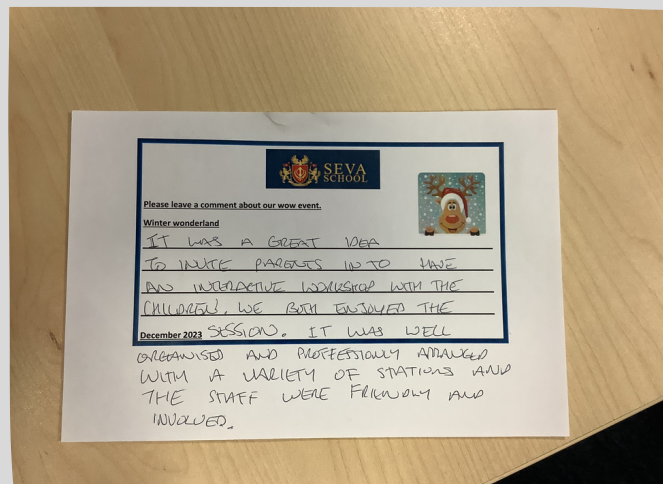 SEVA
SCHOOL
Please leave a comment about our wow event.
Winter wonderland
IT WAS A GREAT IDEA
TO INVITE PARENTS IN TO HAVE
AN INTERACTIVE WORKSHOP WITH THE
CHILDREN. WE BOTH ENJOYED THE
December 2023 SESSION. IT WAS WELL
ORGANISED AND PROFESSIONLY ARRANGED
WITH A VARIETY OF STATIONS AND
THE STAFF WERE FRIENDLY AND
INVOLVED.